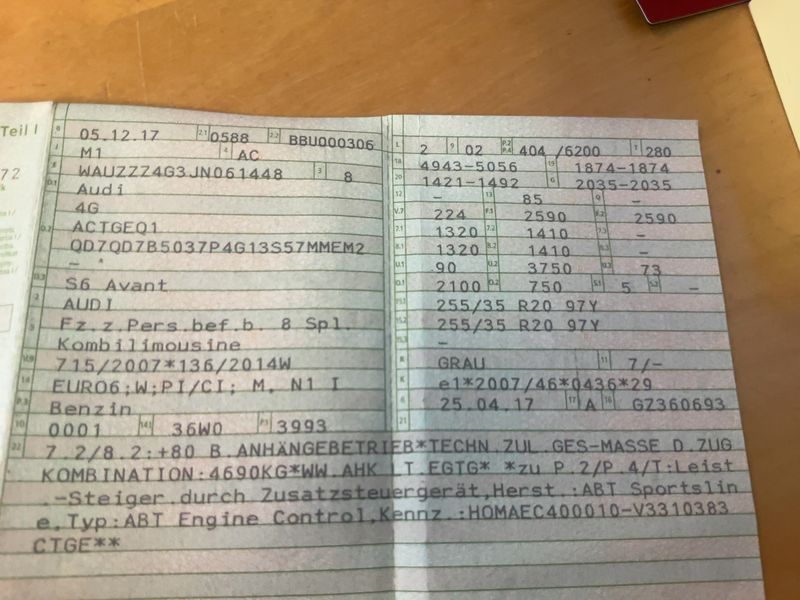 Teil I
B 05.12.17 2.1 0588 2.2 BBU000306
J M1 4 AC
E WAUZZZ4G3JN061448 3 8
D.1 Audi
4G
D.2 ACTGEQ1
QD7QD7B5037P4G13S57MMEM2
- *
D.3 S6 Avant
2 AUDI
5 Fz.z.Pers.bef.b. 8 Spl.
Kombilimousine
V.9 715/2007*136/2014W
14 EURO6;W;PI/CI; M, N1 I
P.3 Benzin
10 0001 14.1 36W0 P.1 3993
L 2 9 02 P.2 P.4 404 /6200 T 280
18 4943-5056 19 1874-1874
20 1421-1492 G 2035-2035
12 - 13 85 Q -
V.7 224 F.1 2590 F.2 2590
7.1 1320 7.2 1410 7.3 -
8.1 1320 8.2 1410 8.3 -
U.1 90 U.2 3750 U.3 73
O.1 2100 O.2 750 S.1 5 S.2 -
15.1 255/35 R20 97Y
15.2 255/35 R20 97Y
15.3 -
R GRAU 11 7/-
K e1*2007/46*0436*29
6 25.04.17 17 A 16 GZ360693
21
22 7.2/8.2:+80 B.ANHÄNGEBETRIEB*TECHN.ZUL.GES-MASSE D.ZUG
KOMBINATION:4690KG*WW.AHK LT.EGTG* *zu P.2/P.4/T:Leist
.-Steiger.durch Zusatzsteuergerät,Herst.:ABT Sportslin
e,Typ:ABT Engine Control,Kennz.:HOMAEC400010-V3310383
CTGE**